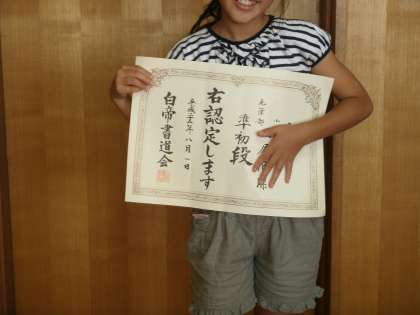 毛筆部
準初段
右認定します
平成二十五年八月一日
白帝書道会